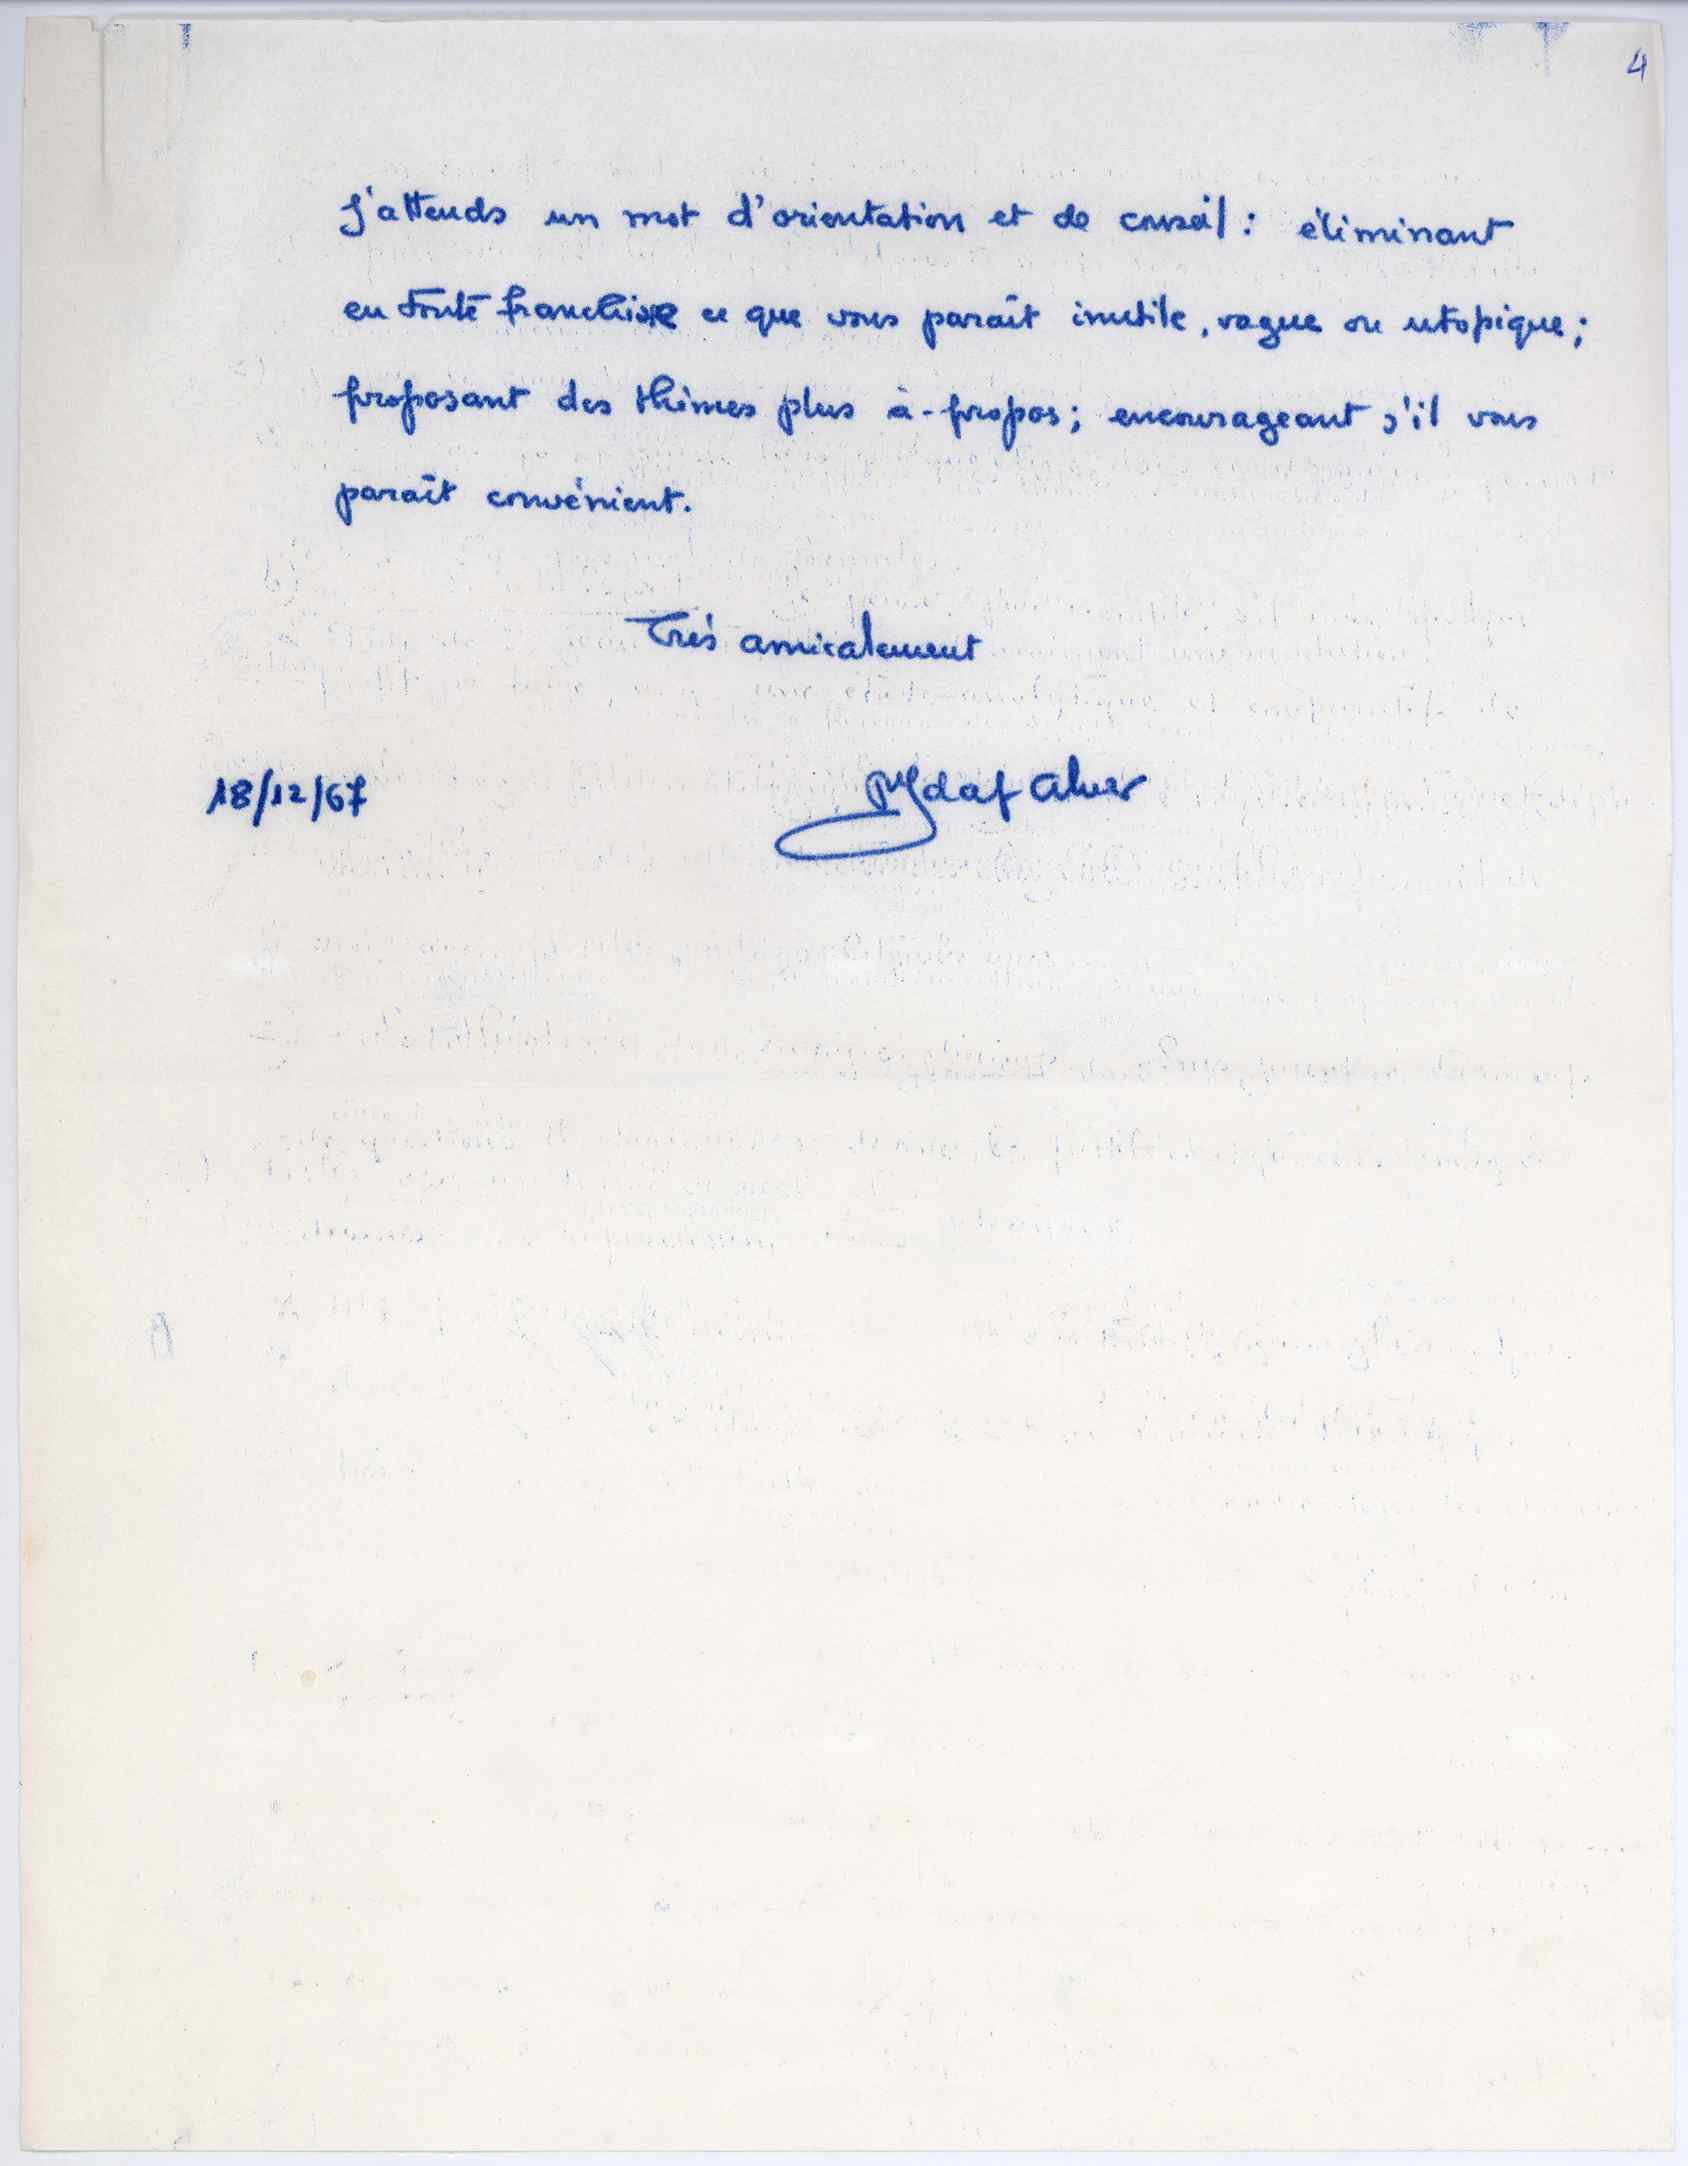 4
J'attends un mot d'orientation et de conseil : éliminant
en toute franchise ce que vous paraît inutile, vague ou utopique ;
proposant des thèmes plus à-propos ; encourageant s'il vous
paraît convénient.
Très amicalement
18/12/67